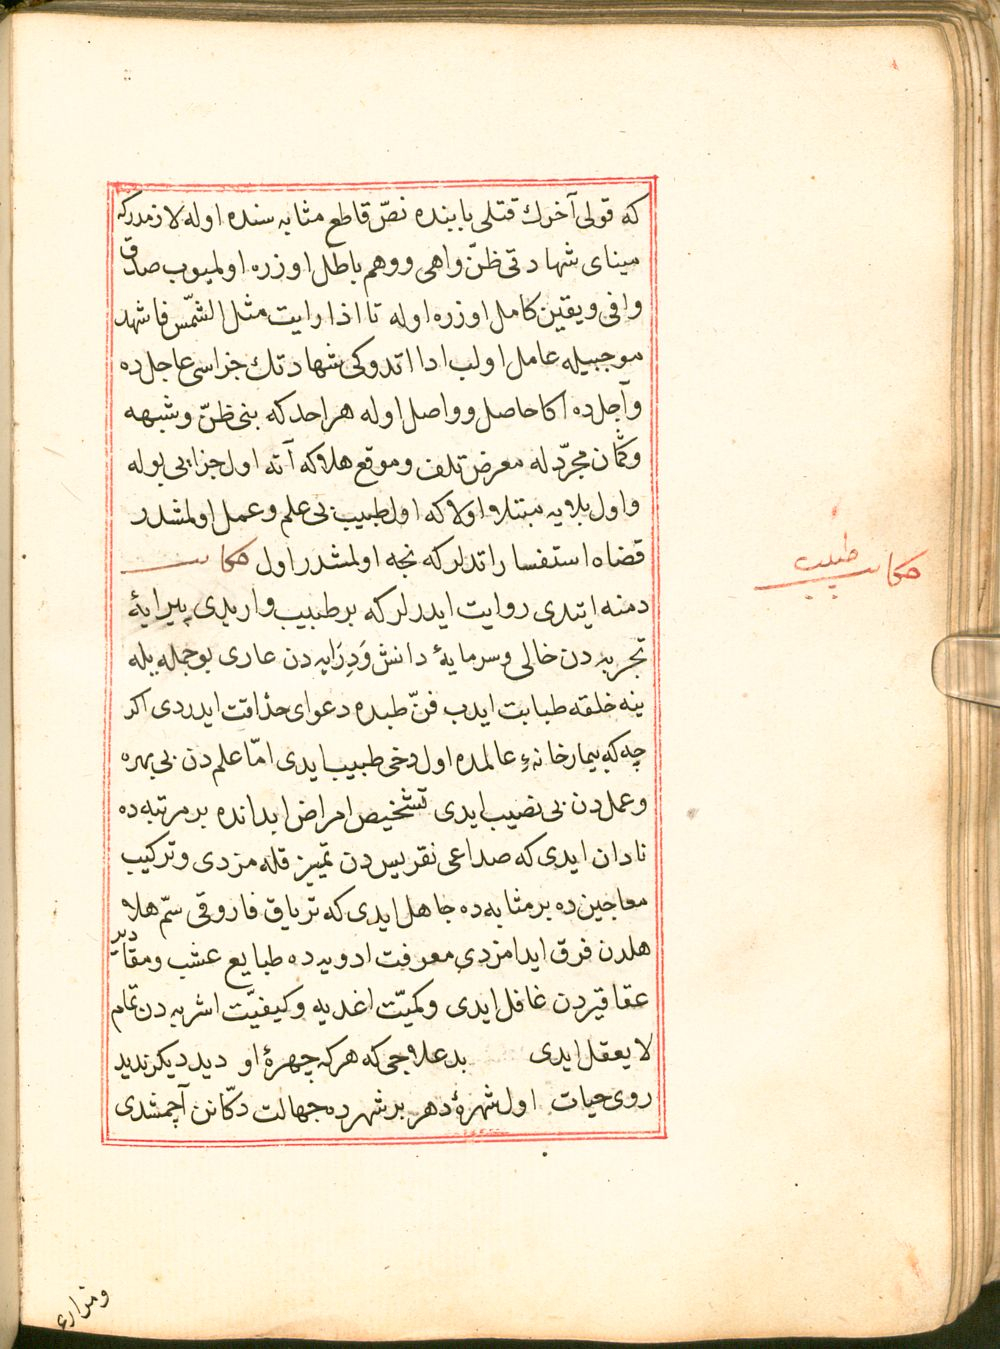 که قولی آخرك قتلی بابنده نصّ قاطع مثابه سنده اوله لازمدرکه
مبنای شهادتی ظنّ واهی ووهم باطل اوزره اولمیوب صدق
وافی ویقین کامل اوزره اوله تا اذا رایت مثل الشمّس فاشهد
موجبیله عامل اولب ادا اتدوکی شهادتك جزاسی عاجل ده
وآجل ده اکا حاصل وواصل اوله هر احد که بنی ظنّ وشبهه
وکمان مجرّد له معرض تلف وموقع هلاکه آته اول جزایی بوله
واول بلایه مبتلا اولا که اول طبیب بی علم وعمل اولمشدر
قضاه استفسار اتدلر که نجه اولمشدر اول حکایت
دمنه ایتدی روایت ایدرلر که بر طبیب واریدی پیرایهٔ
تجربه دن خالی وسرمایهٔ دانش وَدِرَایه دن عاری بوجمله یله
ینه خلقه طبابت ایدب فنّ طبده دعوای حذاقت ایدردی اکر
چه که بیمارخانهٔ عالمده اول دخی طبیب ایدی امّا علم دن بی بهره
وعمل دن بی نصیب ایدی تشخیص امراض ابدانده بر مرتبه ده
نادان ایدی که صداعی نقریس دن تمیز قله مزدی وترکیب
معاجین ده بر مثابه ده جاهل ایدی که تریاق فاروقی سمّ هلا
هلدن فرق ایدامزدی معرفت ادویه ده طبایع عشب ومقادیر
عقاقیردن غافل ایدی وکمیّت اغدیه وکیفیّت اشربه دن تمام
لا یعقل ایدی بد علاجی که هرکه چهرهٔ او دید دیکر ندید
روی حیات اول شهرهٔ دهر بر شهرده جهالت دکّانن آچمشدی
حکایت طبیب